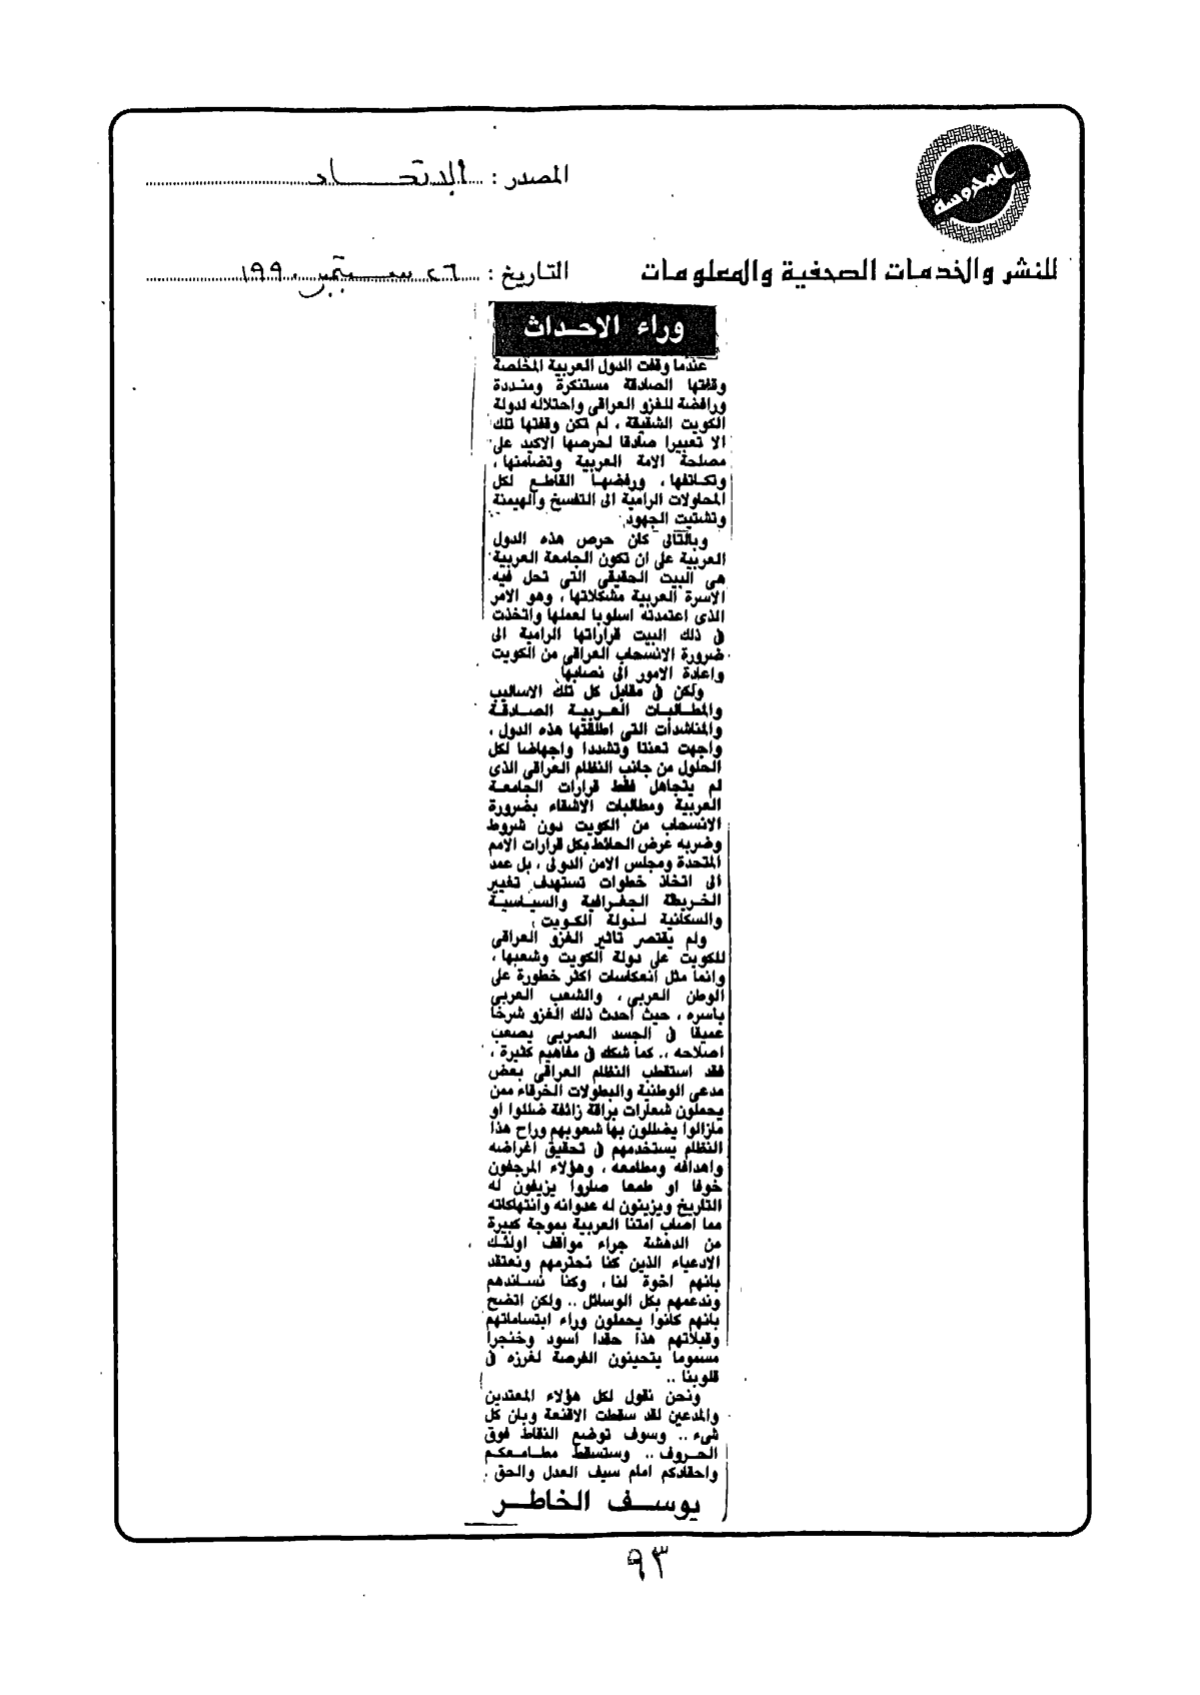 المحروسة
المصدر : الاتحاد
للنشر والخدمات الصحفية والمعلومات
التاريخ : ٢٦ سبتمبر ١٩٩٠
وراء الاحداث
عندما وقفت الدول العربية المخلصة
وقفتها الصادقة مستنكرة ومنددة
ورافضة للغزو العراقى واحتلاله لدولة
الكويت الشقيقة ، لم تكن وقفتها تلك
الا تعبيرا صادقا لحرصها الاكيد على
مصلحة الامة العربية وتضامنها ،
وتكاتفها ، ورفضها القاطع لكل
المحاولات الرامية الى التفسخ والهيمنة
وتشتيت الجهود
وبالتالى كان حرص هذه الدول
العربية على ان تكون الجامعة العربية
هى البيت الحقيقى التى تحل فيه
الاسرة العربية مشكلاتها ، وهو الامر
الذى اعتمدته اسلوبا لعملها واتخذت
فى ذلك البيت قراراتها الرامية الى
ضرورة الانسحاب العراقى من الكويت
واعادة الامور الى نصابها
ولكن فى مقابل كل تلك الاساليب
والمطالبات العربية الصادقة
والمناشدات التى اطلقتها هذه الدول ،
واجهت تعنتا وتشددا واجهاضا لكل
الحلول من جانب النظام العراقى الذى
لم يتجاهل فقط قرارات الجامعة
العربية ومطالبات الاشقاء بضرورة
الانسحاب من الكويت دون شروط
وضربه عرض الحائط بكل قرارات الامم
المتحدة ومجلس الامن الدولى ، بل عمد
الى اتخاذ خطوات تستهدف تغيير
الخريطة الجغرافية والسياسية
والسكانية لدولة الكويت .
ولم يقتصر تاثير الغزو العراقى
للكويت على دولة الكويت وشعبها ،
وانما مثل انعكاسات اكثر خطورة على
الوطن العربى ، والشعب العربى
باسره ، حيث أحدث ذلك الغزو شرخا
عميقا فى الجسد العربى يصعب
اصلاحه .. كما شكك فى مفاهيم كثيرة ،
فقد استقطب النظام العراقى بعض
مدعى الوطنية والبطولات الخرقاء ممن
يحملون شعارات براقة زائفة ضللوا او
مازالوا يضللون بها شعوبهم وراح هذا
النظام يستخدمهم فى تحقيق أغراضه
واهدافه ومطامعه ، وهؤلاء المرجفون
خوفا او طمعا صاروا يزيفون له
التاريخ ويزينون له عدوانه وانتهاكاته
مما اصاب امتنا العربية بموجة كبيرة
من الدهشة جراء مواقف اولئك
الادعياء الذين كنا نحترمهم ونعتقد
بانهم اخوة لنا ، وكنا نساندهم
وندعمهم بكل الوسائل .. ولكن اتضح
بانهم كانوا يحملون وراء ابتساماتهم
وقبلاتهم هذا حقدا أسود وخنجرا
مسموما يتحينون الفرصة لغرزه فى
قلوبنا ..
ونحن نقول لكل هؤلاء المعتدين
والمدعين لقد سقطت الاقنعة وبان كل
شىء .. وسوف توضع النقاط فوق
الحروف .. وستسقط مطامعكم
واحقادكم امام سيف العدل والحق .
يوسف الخاطر
٩٣